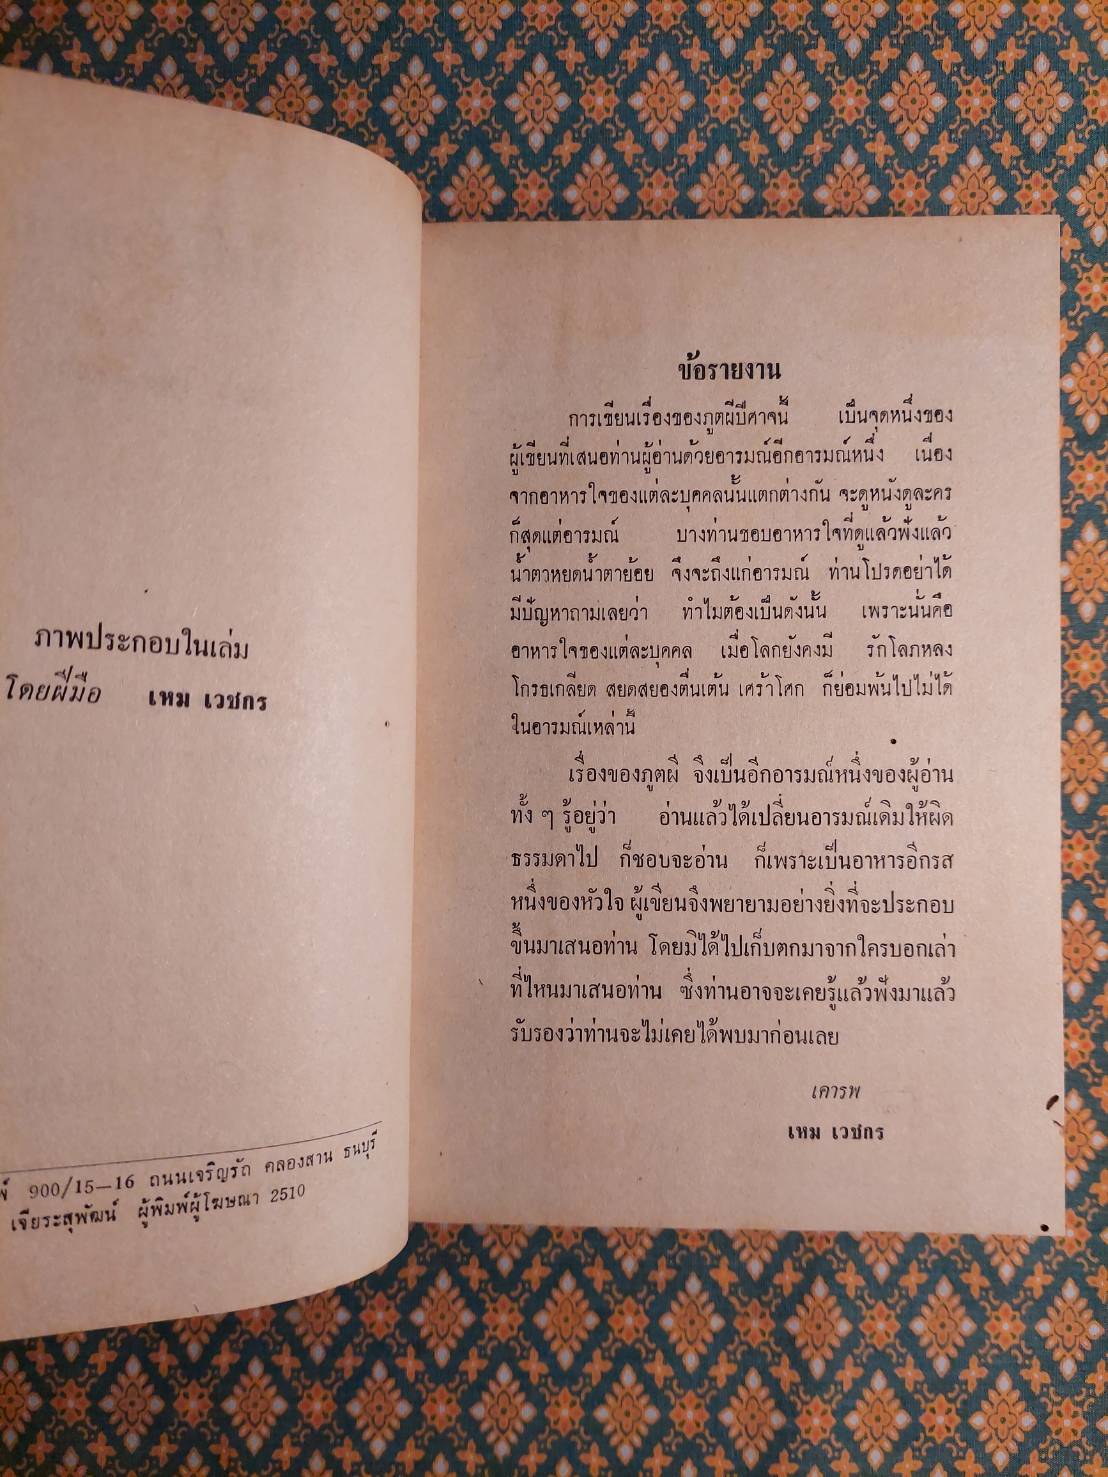 ภาพประกอบในเล่ม
โดยฝีมือ เหม เวชกร
900/15—16 ถนนเจริญรัถ คลองสาน ธนบุรี
เจียระสุพัฒน์ ผู้พิมพ์ผู้โฆษณา 2510
ข้อรายงาน
การเขียนเรื่องของภูตผีปีศาจนี้ เป็นจุดหนึ่งของ
ผู้เขียนที่เสนอท่านผู้อ่านด้วยอารมณ์อีกอารมณ์หนึ่ง เนื่อง
จากอาหารใจของแต่ละบุคคลนั้นแตกต่างกัน จะดูหนังดูละคร
ก็สุดแต่อารมณ์ บางท่านชอบอาหารใจที่ดูแล้วฟังแล้ว
น้ำตาหยดน้ำตาย้อย จึงจะถึงแก่อารมณ์ ท่านโปรดอย่าได้
มีปัญหาถามเลยว่า ทำไมต้องเป็นดังนั้น เพราะนั่นคือ
อาหารใจของแต่ละบุคคล เมื่อโลกยังคงมี รักโลภหลง
โกรธเกลียด สยดสยองตื่นเต้น เศร้าโศก ก็ย่อมพ้นไปไม่ได้
ในอารมณ์เหล่านี้
เรื่องของภูตผี จึงเป็นอีกอารมณ์หนึ่งของผู้อ่าน
ทั้ง ๆ รู้อยู่ว่า อ่านแล้วได้เปลี่ยนอารมณ์เดิมให้ผิด
ธรรมดาไป ก็ชอบจะอ่าน ก็เพราะเป็นอาหารอีกรส
หนึ่งของหัวใจ ผู้เขียนจึงพยายามอย่างยิ่งที่จะประกอบ
ขึ้นมาเสนอท่าน โดยมิได้ไปเก็บตกมาจากใครบอกเล่า
ที่ไหนมาเสนอท่าน ซึ่งท่านอาจจะเคยรู้แล้วฟังมาแล้ว
รับรองว่าท่านจะไม่เคยได้พบมาก่อนเลย
เคารพ
เหม เวชกร